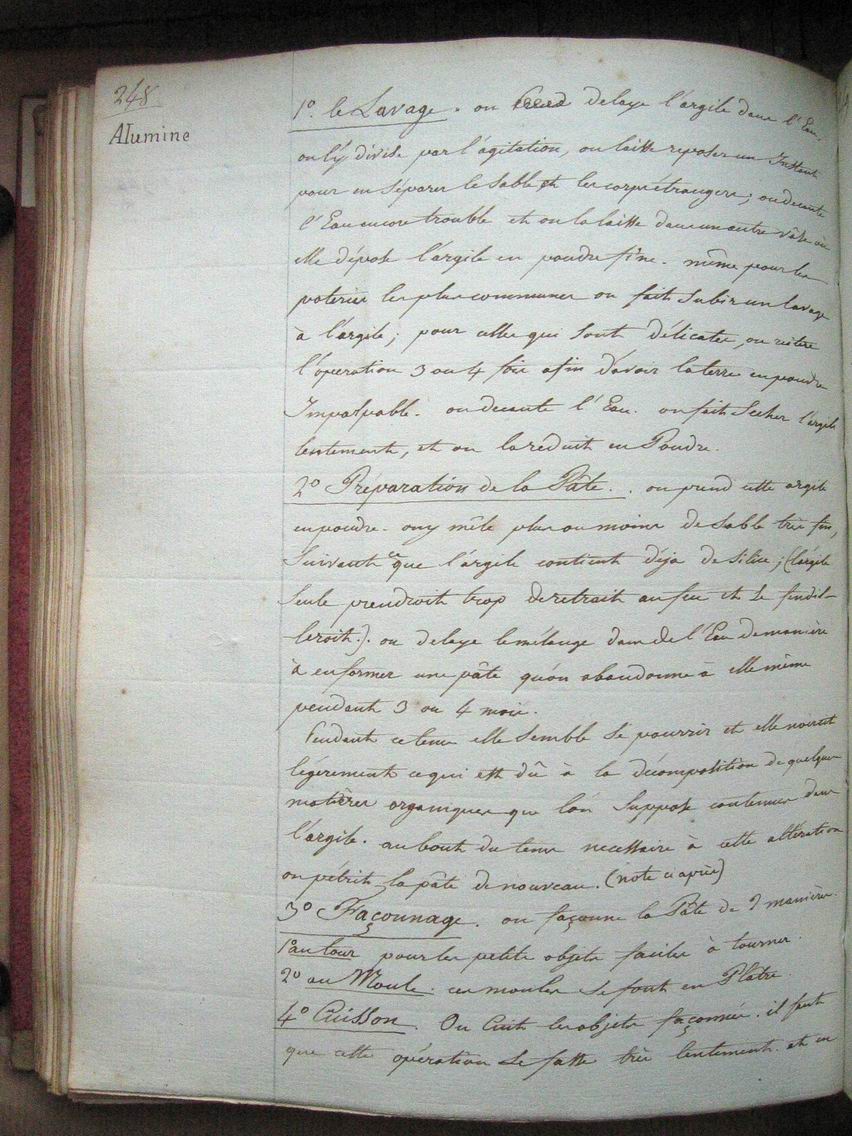 248
Alumine
1º. le Lavage. on delaye l'argile dans l'Eau,
on l'y divise par l'agitation, on laisse reposer un Instant
pour en séparer le sable et les corps étrangers; on decante
l'Eau encore trouble et on la laisse dans un autre vâse où
elle dépose l'argile en poudre fine. même pour les
poteries les plus communes on fait subir un lavage
à l'argile; pour celles qui sont délicates, on réitere
l'operation 3 ou 4 fois afin d'avoir la terre en poudre
Impalpable. on decante l'Eau. on fait Secher l'argile
lentement, et on la reduit en Poudre.
2º Préparation de la Pâte. on prend cette argile
en poudre. on y mêle plus ou moins de sable très fin,
Suivant ce que l'argile contient déja de silice; (l'argile
seule prendroit trop de retrait au feu et se fendil-
leroit). on delaye le mélange dans de l'Eau de manière
à en former une pâte qu'on abandonne à elle même
pendant 3 ou 4 mois.
Pendant ce tems elle semble se pourrir et elle noircit
légerement ce qui est dû à la décomposition de quelques
matières organiques que l'on suppose contenues dans
l'argile. au bout du tems necessaire à cette altération
on pétrit la pâte de nouveau. (note ci après)
3º Façonnage. on façonne la Pâte de 2 manières.
1º au tour pour les petits objets faciles à tourner.
2º au Moule. ces moules se font en Plâtre.
4º Cuisson. On Cuit les objets façonnés. il faut
que cette opération se fasse très lentement. et en